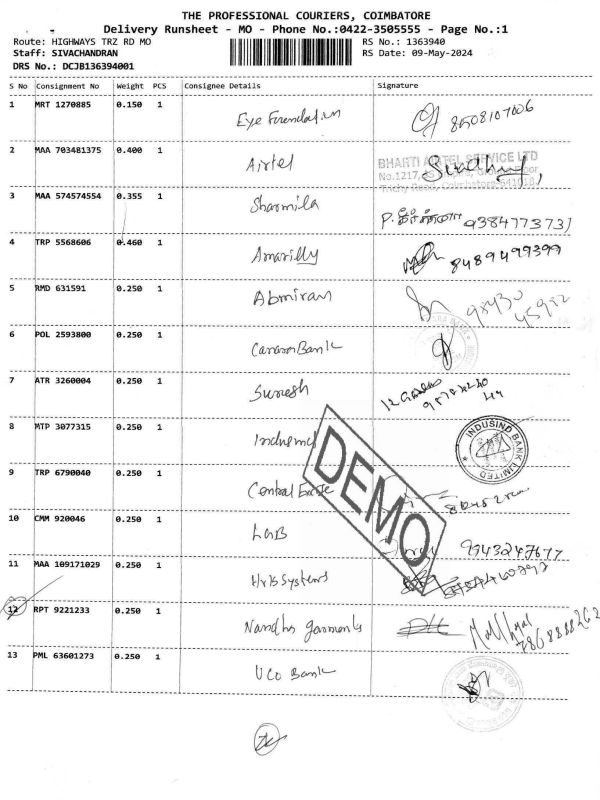 THE PROFESSIONAL COURIERS, COIMBATORE
Delivery Runsheet - MO - Phone No.:0422-3505555 - Page No.:1
Route: HIGHWAYS TRZ RD MO RS No.: 1363940
Staff: SIVACHANDRAN RS Date: 09-May-2024
DRS No.: DCJB136394001
S No Consignment No Weight PCS Consignee Details Signature
1 MRT 1270885 0.150 1 Eye Foundation 8508107006
2 MAA 703481375 0.400 1 Airtel BHARTI AIRTEL SERVICE LTD
No.1217,
Trichy Road, Coimbatore-641018
3 MAA 574574554 0.355 1 Sharmila 9384773731
4 TRP 5568606 0.460 1 Amarilly 8489499399
5 RMD 631591 0.250 1 Abmiran 98430
6 POL 2593800 0.250 1 Canara Bank
7 ATR 3260004 0.250 1 Suresh
8 MTP 3077315 0.250 1 Indusind INDUSIND BANK LIMITED
9 TRP 6790040 0.250 1 Central Excise
10 CMM 920046 0.250 1 9943247677
11 MAA 109171029 0.250 1 Systems
12 RPT 9221233 0.250 1 Nandhu garments
13 PML 63601273 0.250 1 UCO Bank
DEMO